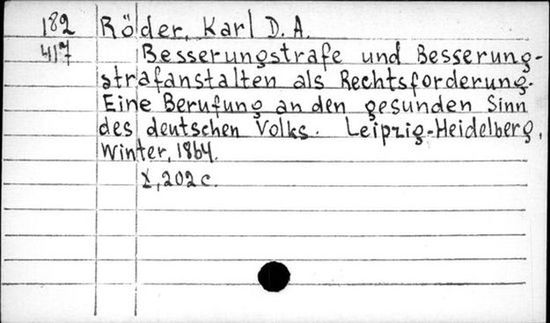 182 Röder, Karl D. A.
417 Besserungstrafe und Besserung-
strafanstalten als Rechtsforderung.
Eine Berufung an den gesunden Sinn
des deutschen Volks. Leipzig-Heidelberg,
Winter, 1864.
X, 202 c.